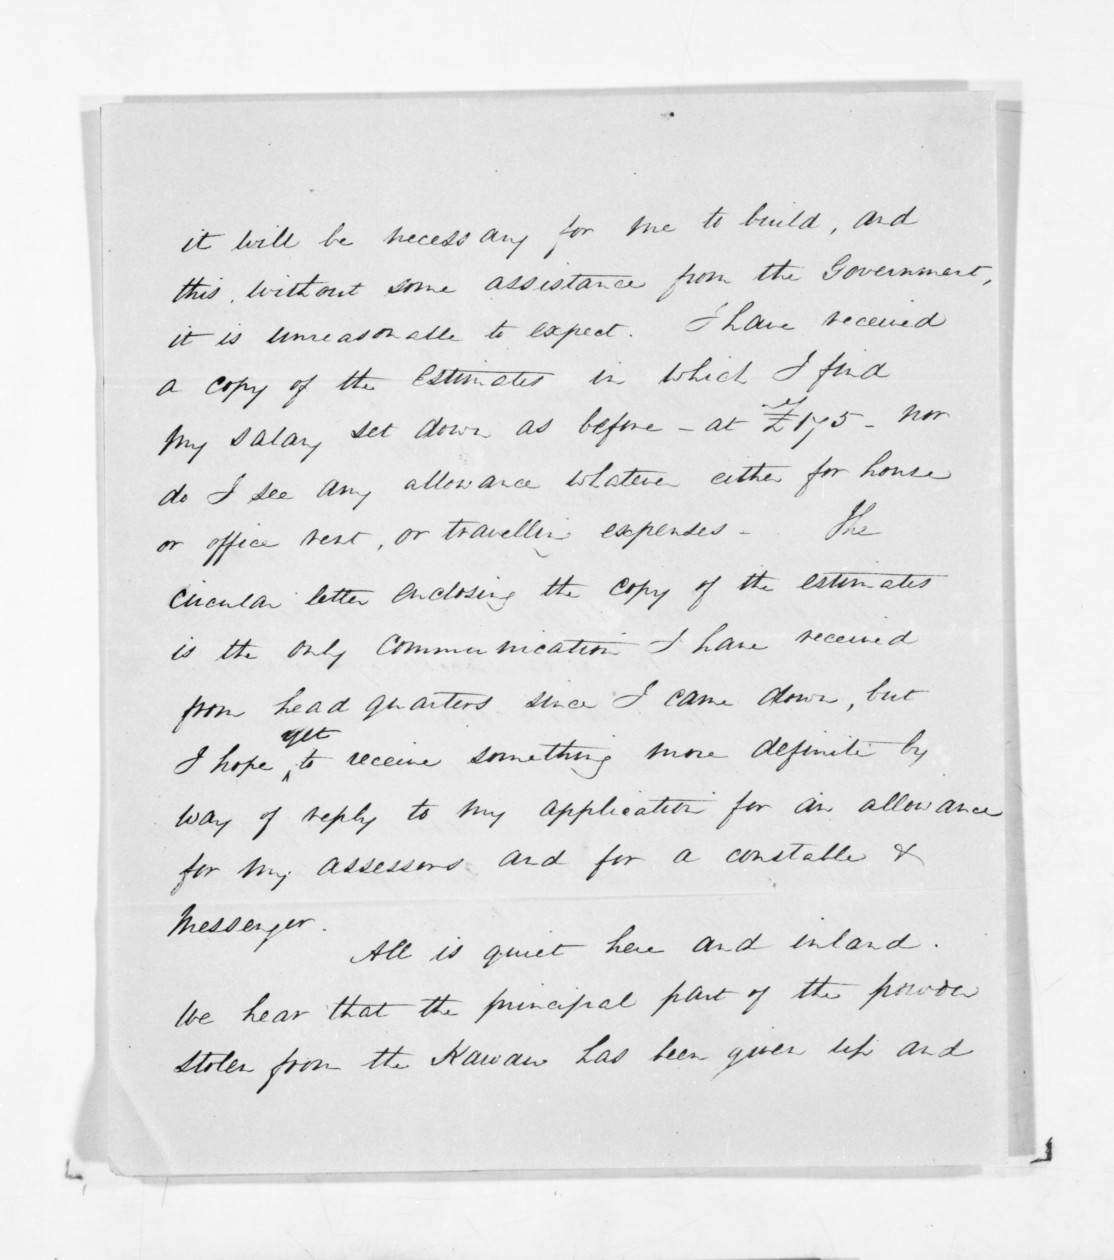 it will be necessary for me to build, and
this, without some assistance from the Government,
it is unreasonable to expect. I have received
a copy of the Estimates in which I find
my salary set down as before - at £175 - nor
do I see any allowance whatever either for house
or office rent, or travelling expenses - The
circular letter enclosing the copy of the estimates
is the only communication I have received
from head quarters since I came down, but
I hope yet to receive something more definite by
way of reply to my application for an allowance
for my assessors and for a constable &
Messenger.
All is quiet here and inland.
We hear that the principal part of the powder
stolen from the Kawau has been given up and